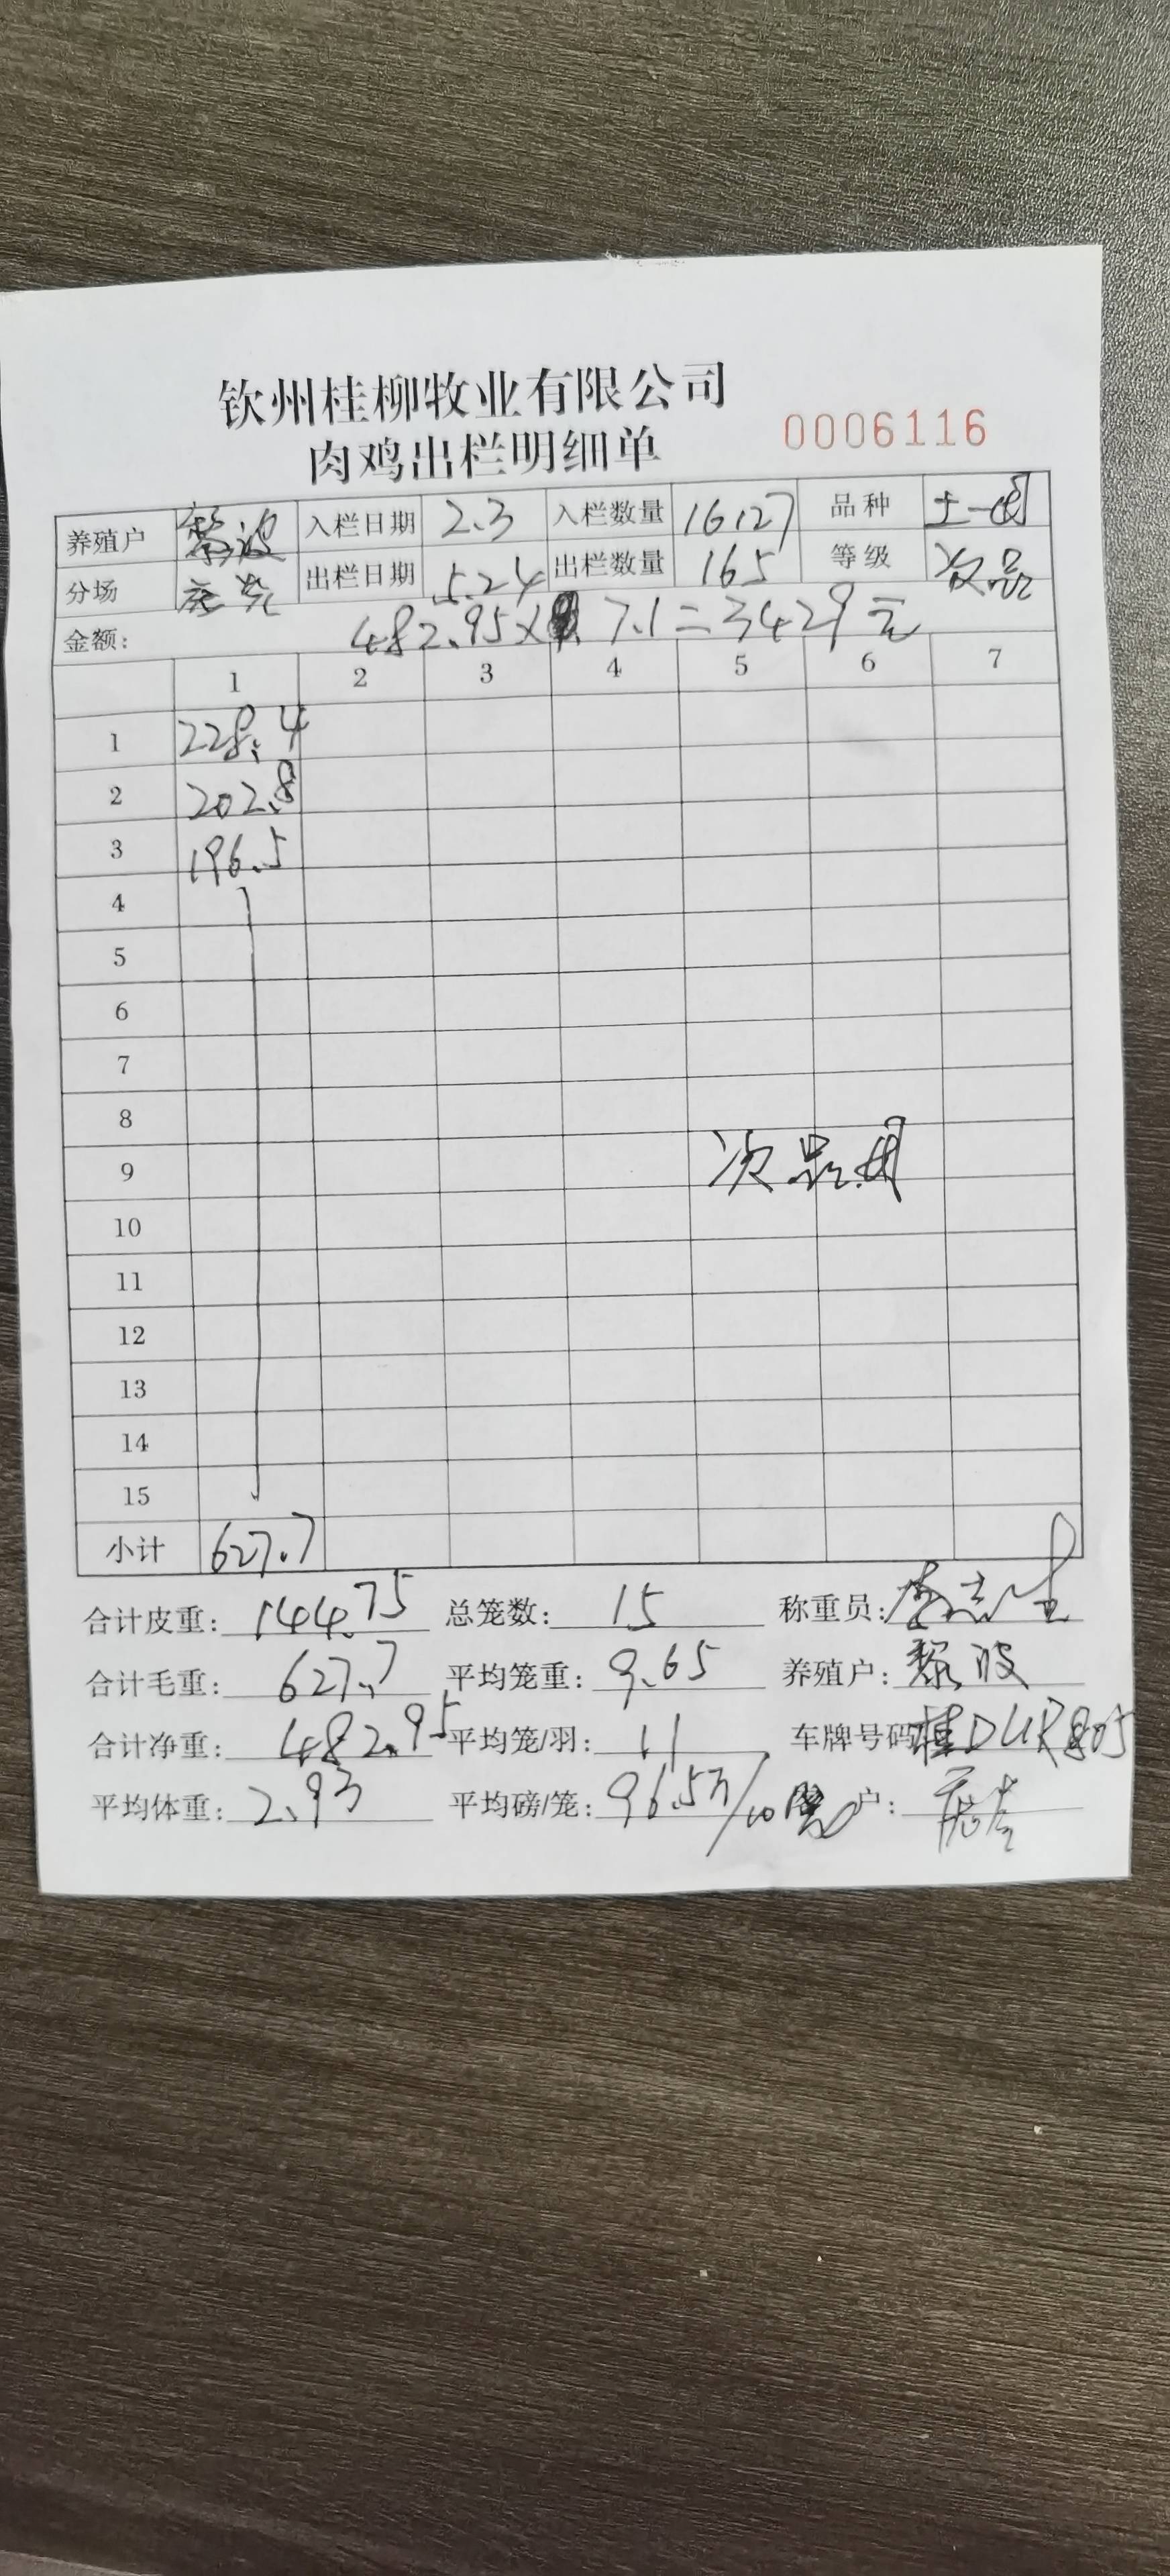 钦州桂柳牧业有限公司
肉鸡出栏明细单 0006116
养殖户 黎波 入栏日期 2.3 入栏数量 16127 品种 土一
分场 出栏日期 5.24 出栏数量 165 等级 次品
金额: 482.95× 7.1=3429元
1 2 3 4 5 6 7
1 228.4
2 202.8
3 196.5
4
5
6
7
8
9 次品
10
11
12
13
14
15
小计 627.7
合计皮重: 144.75 总笼数: 15 称重员:
合计毛重: 627.7 平均笼重: 9.65 养殖户: 黎波
合计净重: 482.95 平均笼/羽: 11 车牌号码 桂D
平均体重: 2.93 平均磅/笼: 96.5 /10 户: